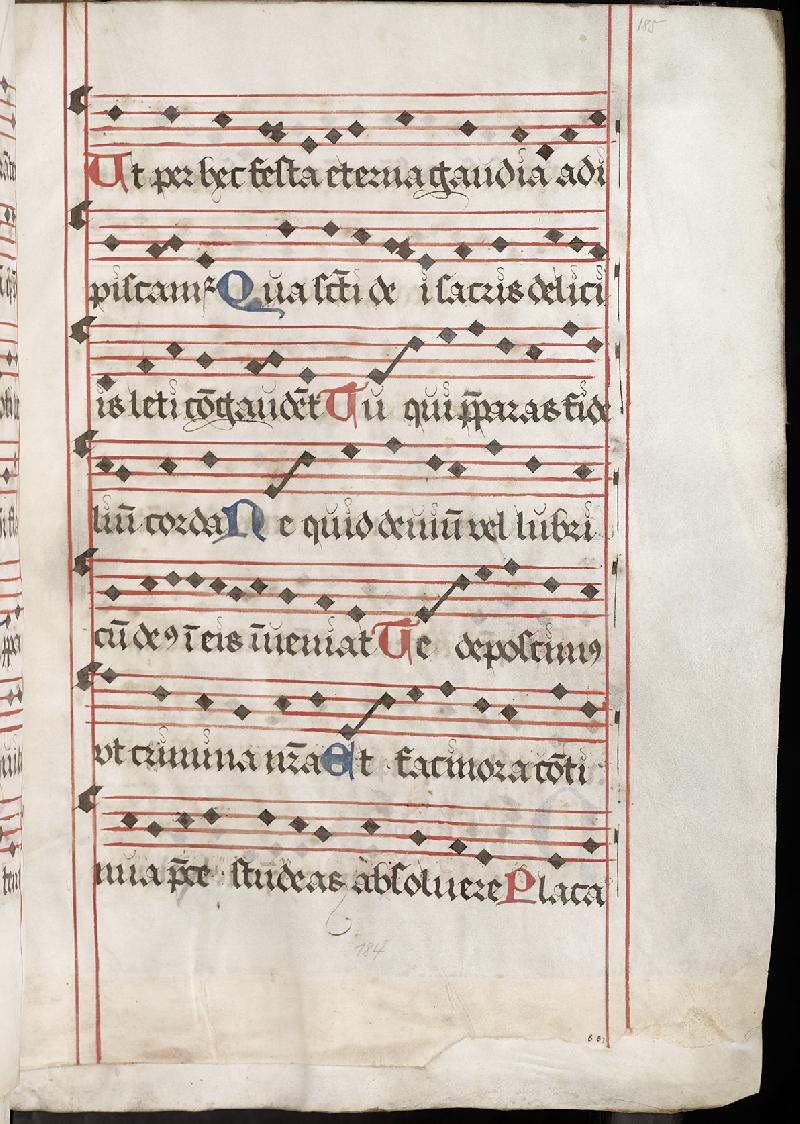 185
Ut per hec festa eterna gaudia adi
piscamꝛ Qua scti dei sacris delici
is leti cōgaudēt Tu qui p̄paras fide
liū corda Ne quid deuiū vel lubri
cū deꝯ ī eis īueniat Te deposcimꝯ
vt crimina nr̄a Et facinora cōti
nua p̄ce studeas absoluere Placa
184